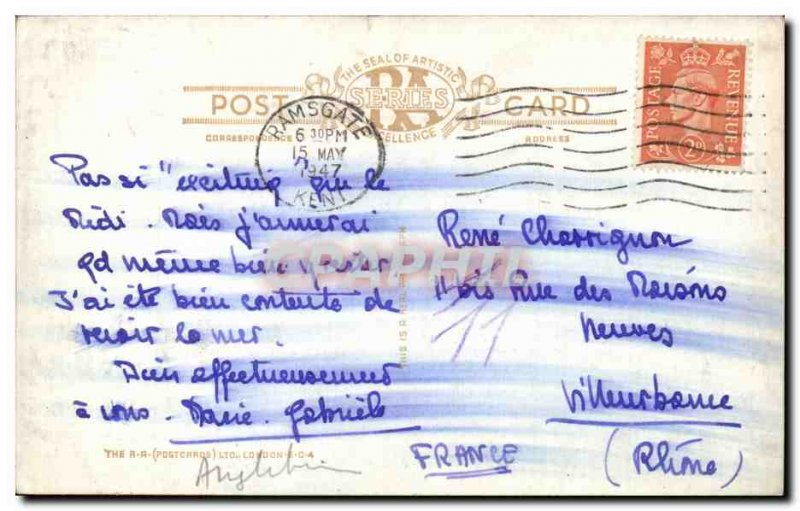 THE SEAL OF ARTISTIC
POST RA SERIES CARD
EXCELLENCE
CORRESPONDENCE ADDRESS
RAMSGATE
6 30 PM
15 MAY
1947
KENT
POSTAGE REVENUE
2D
Pas si "exciting que le
Midi. Mais j'aimerai
qd même bien rester
J'ai été bien contente de
revoir la mer.
Bien affectueusement
à vous. Marie. Gabrielle
René Chassignon
11 bis Rue des Maisons
Neuves
Villeurbanne
(Rhône)
FRANCE
11
THIS IS A REAL
THE R.A. (POSTCARDS) LTD. LONDON E.C.4
Angleterre